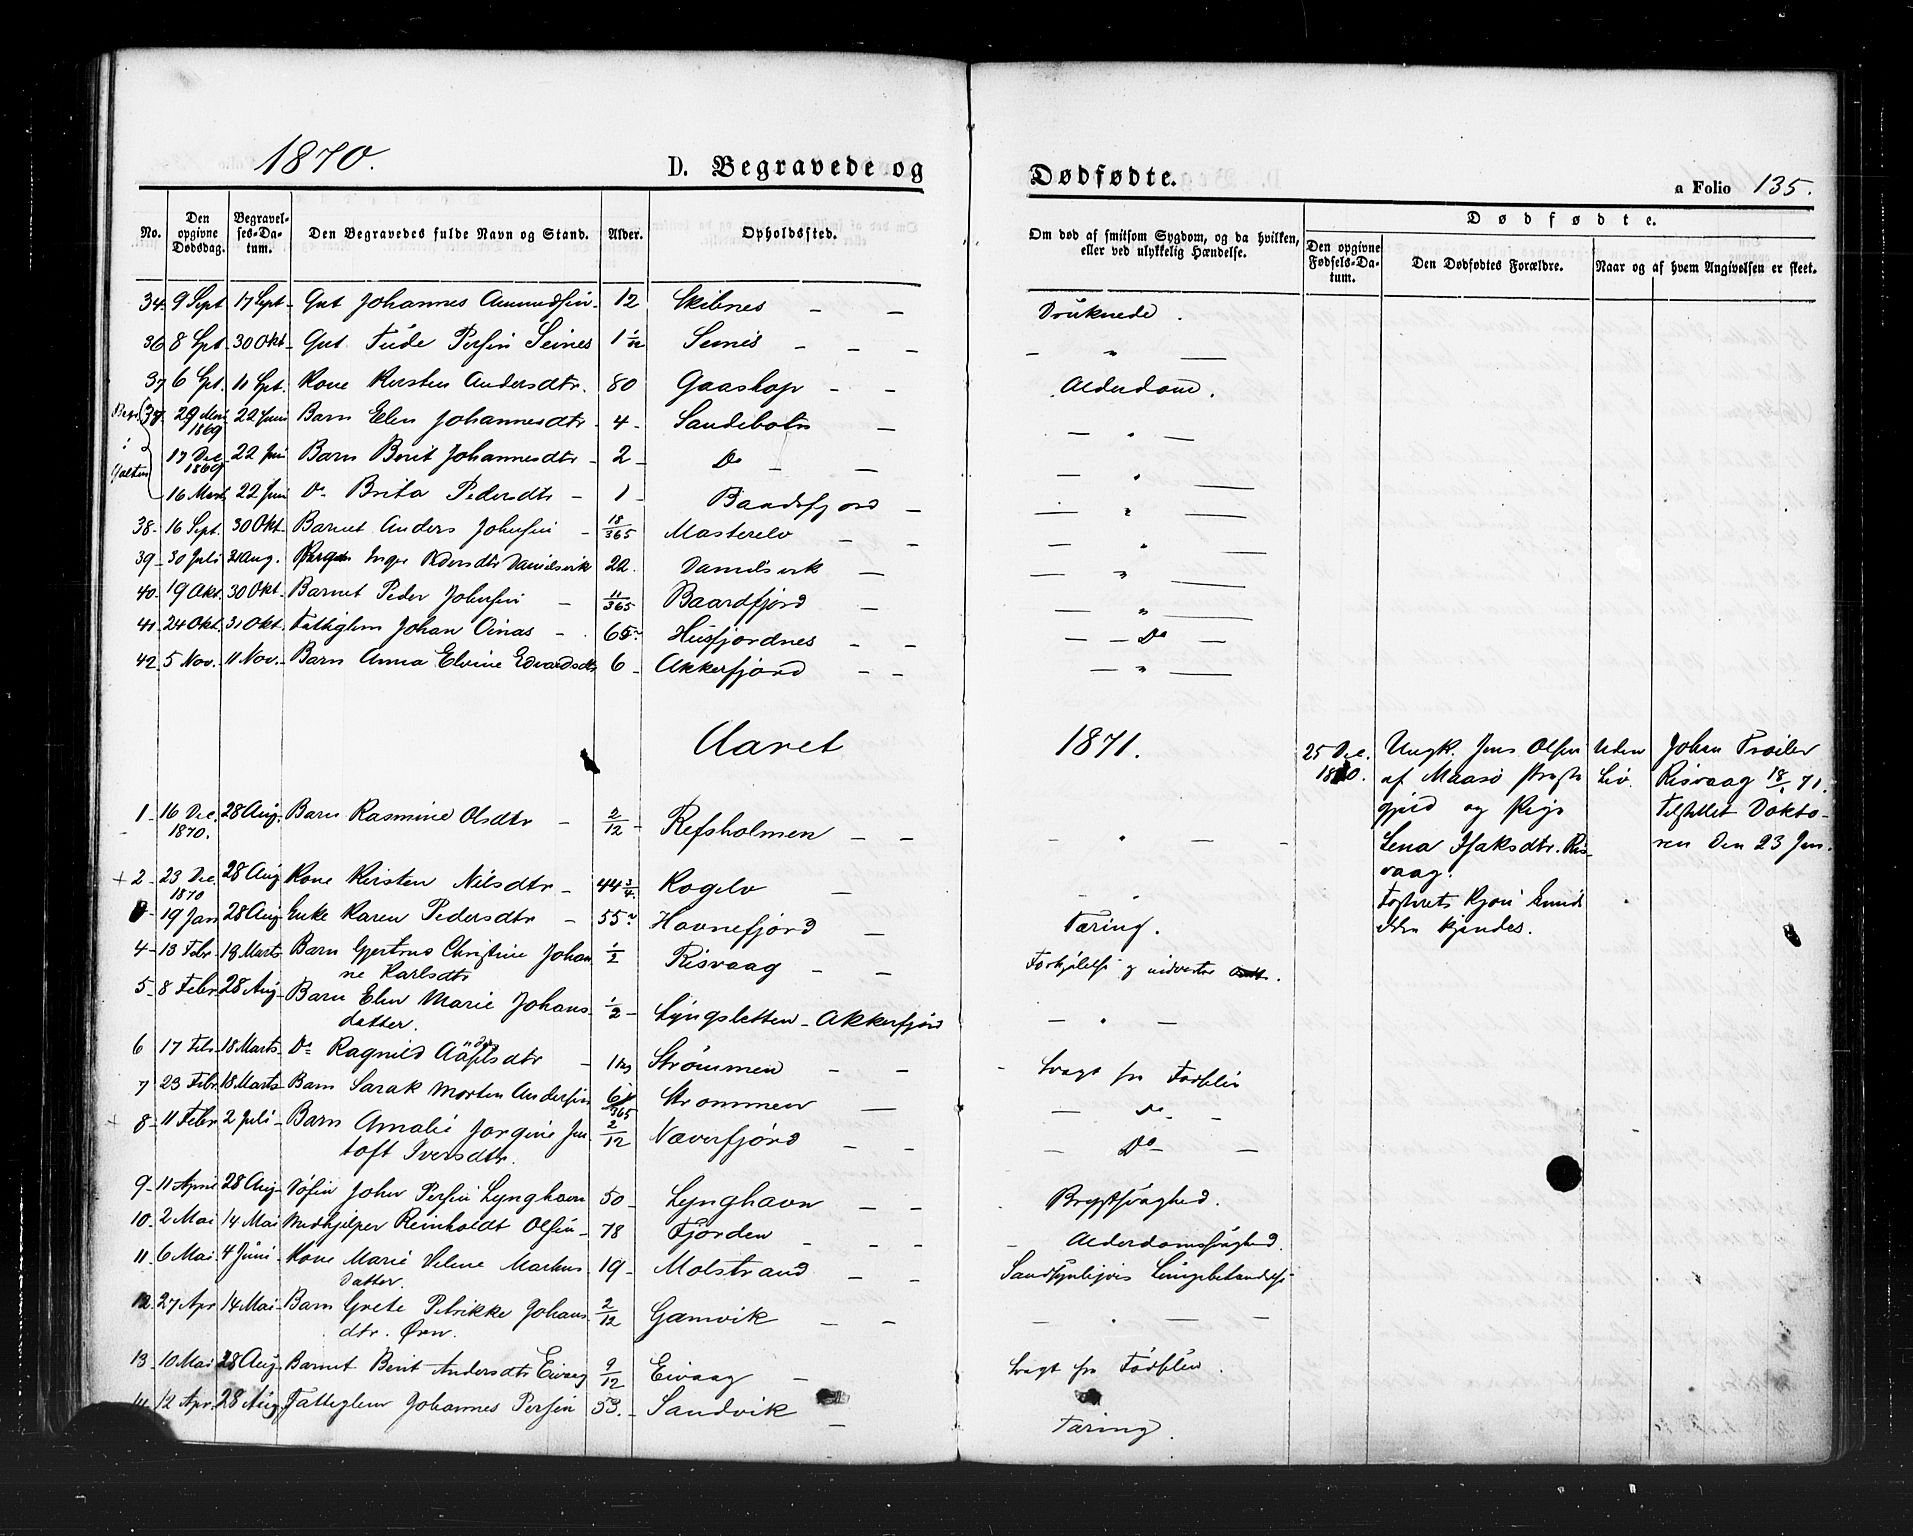 1870.
D. Begravede og Dødfødte.
a Folio 135.
No.
Den opgivne Dødsdag.
Begravelses-Datum.
Den Begravedes fulde Navn og Stand.
Alder.
Opholdssted.
Om død af smitsom Sygdom, og da hvilken, eller ved ulykkelig Hændelse.
Dødfødte.
Den opgivne Fødsels-Datum.
Den Dødfødtes Forældre.
Naar og af hvem Angivelsen er skeet.
34 - 9 Sept 17 Sept - Gut Johannes Amundsen - 12 Skibnes — — Druknede.
36 8 Spt. 30 Okt - Gut Tude Persen Seines 1 1/12 Seines — — — - " —
37 6 Spt. 11 Spt. Kone Kirsten Andersdtr. 80 Gaashop - - Alderdom.
29 Mai 1869 22 Juni Barn Elen Johannesdtr 4 - Sandebotn — — " —
17 Dec 1869 22 Juni Barn Berit Johannesdtr - 2 - Do - — — " —
16 Marts 22 Juni Do Brita Pedersdtr - 1 - Baadsfjord — — " —
38 - 16 Sept. 30 Okt - Barnet Anders Johnsen - 18/365 Masterelv — — — " —
39 - 30 Juli 21 Aug. Inger Pedersdtr Danielsvik 22. Danielsvik — — " —
40 - 19 Okt. 30 Okt. Barnet Peder Johnsen — 11/365 Baardfjord — — " —
41 - 24 Okt. 31 Okt. Fattiglem Johan Oinas - 65 Husfjordnes — — — - Do —
42 - 5 Nov. 11 Nov. - Barn Anna Elvine Edvardsdtr 6 - Akkerfjord — — — " —
Aaret 1871.
25 Dec. 1870. Ungk. Jens Olsen
af Maasø Præste
gjeld og Pige
Lena Isaksdtr. Ris-
vaag.
Fosterets Kjøn
kjendes.
Uden Liv.
Johan Troiler
Risvaag 18/1 71.
Tilstillet Dokto-
ren den 23 Jan.
1 - 16 Dec. 1870. 28 Aug. Barn Rasmine Olsdtr - 2/12 - Refsholmen — — "
+ 2 - 23 Dec. 1870 28 Aug Kone Kirsten Nilsdtr - 44 3/4 Kogelv — "
19 Jan 28 Aug Enke Karen Pedersdtr - 55 Havnefjord — Tæring.
4 - 13 Febr 18 Marts Barn Gjertrud Christine Johan
ne Karlsdtr 1/2 Risvaag - — Forkjølelse og
5 - 8 Febr 28 Aug - Barn Elen Marie Johans-
datter. 1/2 - Lyngsletten - Akkerfjord — " —
6 17 Feb. 18 Marts - Do Ragnild - Strømmen - — - Svagt fra Fødselen
7 - 23 Febr 18 Marts - Barn Sarak Morten Andersen Strømmen — — Do - -
+ 8 - 11 Febr 2 Juli - Barn Amalie Jørgine Jen
toft Iversdtr. 2/12 Næverfjord — — Do — —
9 - 11 April 28 Aug - Søfin John Persen Lynghavn 50 - Lynghavn — — Brystsvaghed.
10 - 2 Mai 14 Mai Medhjelper Reinholdt Olsen - 78 Fjorden — — Alderdomssvaghed.
11 - 6 Mai - 4 Juni - Kone Marie Helene Markus
datter. 19 - Molstrand — — Sandsynligvis Lungebetændelse
12 - 27 Apr 14 Mai - Barn Grete Petrikke Johans
dtr. Ørn. 2/12 Gamvik — — — " — —
13 - 10 Mai 28 Aug - Barnet Berit Andersdtr Eivaag 9/12 Eivaag - Svagt fra Fødselen.
14 - 12 Apr. 28 Aug. Fattiglem Johannes Persen 53. - Sandvik — Tæring.